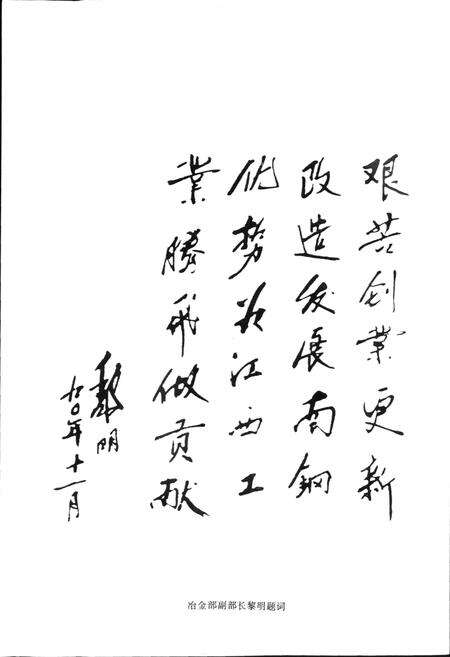 艰苦创业更新
改造发展南钢
优势为江西工
业腾飞做贡献
黎明
九〇年十一月
冶金部副部长黎明题词